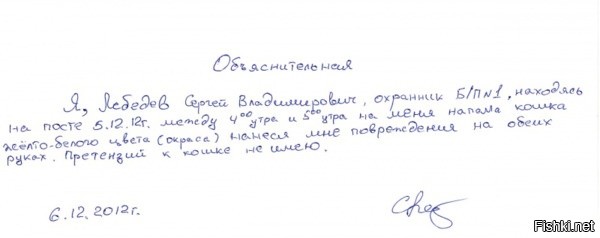 Объяснительная
Я, Лебедев Сергей Владимирович, охранник Б/П №1, находясь
на посте 5.12.12г. между 4⁰⁰ утра и 5⁰⁰ утра на меня напала кошка
жёлто-белого цвета (окраса) нанеся мне повреждения на обеих
руках. Претензий к кошке не имею.
6.12.2012г.
Fishki.net